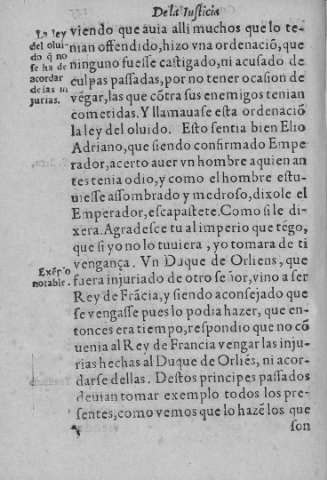 De la Iusticia
La ley
del olui-
do q̃ no
se ha de
acordar
de las in
jurias.
viendo que auia alli muchos que lo te-
nian offendido, hizo vna ordenaciõ, que
ninguno fuesse castigado, ni acusado de
culpas passadas, por no tener ocasion de
vẽgar, las que cõtra sus enemigos tenian
cometidas. Y llamauase esta ordenaciõ
la ley del oluido. Esto sentia bien Elio
Adriano, que siendo confirmado Empe-
rador, acerto auer vn hombre a quien an
tes tenia odio, y como el hombre estu-
uiesse assombrado y medroso, dixole el
Emperador, escapastete. Como si le di-
xera. Agradesce tu al imperio que tẽgo,
que si yo no lo tuuiera, yo tomara de ti
vengança. Vn Duque de Orliens, que
fuera injuriado de otro señor, vino a ser
Rey de Frãcia, y siendo aconsejado que
se vengasse pues lo podia hazer, que en-
tonces era tiempo, respondio que no cõ
uenia al Rey de Francia vengar las inju-
rias hechas al Duque de Orliẽs, ni acor-
darse dellas. Destos principes passados
deuian tomar exemplo todos los pre-
sentes, como vemos que lo hazẽ los que
son
Exẽp̃o
notable.